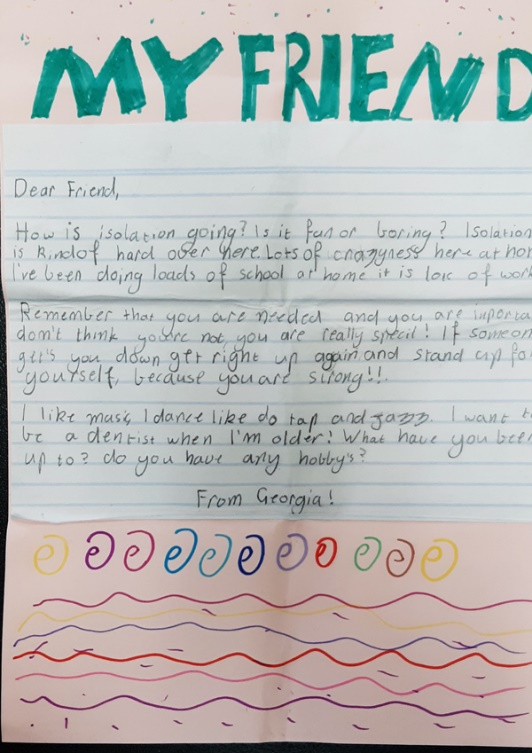 MY FRIEND
Dear Friend,
How is isolation going? Is it fun or boring? Isolation
is kindof hard over here. Lots of crazyness here at hom
I've been doing loads of school at home it is lox of work
Remember that you are needed and you are importa
don't think you are not, you are really specil! If someon
gets you down get right up again and stand up fo
yourself, because you are strong!!.
I like music, I dance like do tap and jazz. I want t
be a dentist when I'm older! What have you been
up to? do you have any hobby's?
From Georgia!